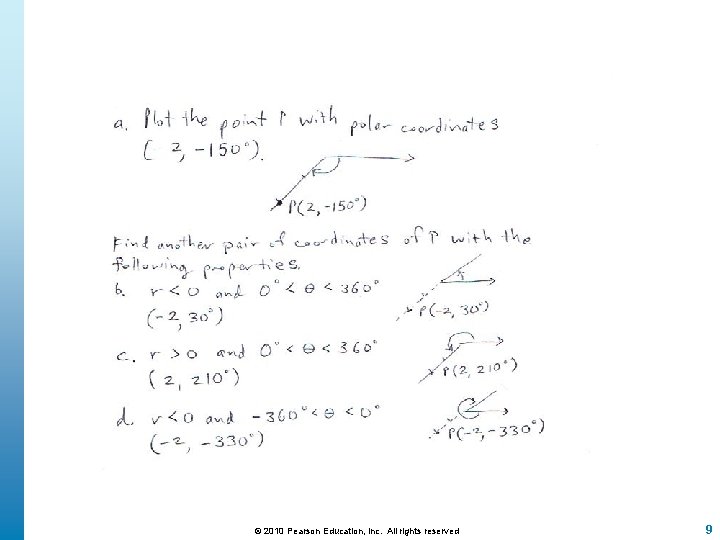 a. Plot the point P with polar coordinates
(2, -150°).
P(2, -150°)
Find another pair of coordinates of P with the
following properties.
b. r < 0 and 0° < θ < 360°
(-2, 30°)
P(-2, 30°)
c. r > 0 and 0° < θ < 360°
(2, 210°)
P(2, 210°)
d. r < 0 and -360° < θ < 0°
(-2, -330°)
P(-2, -330°)
© 2010 Pearson Education, Inc. All rights reserved
9